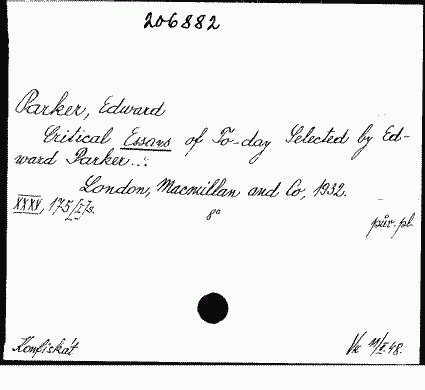 206882
Parker, Edward
Critical Essays of To-day Selected by Ed-
ward Parker...
London, Macmillan and Co, 1932.
XXXV, 175/I/s.
8°
pův. pl.
Konfiskát
Vx 11/X.48.